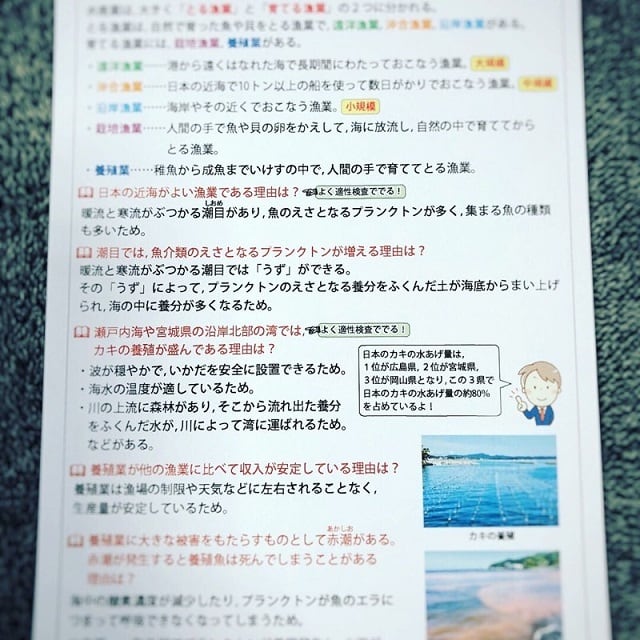 水産業は、大きく「とる漁業」と「育てる漁業」の2つに分かれる。
とる漁業は、自然で育った魚や貝をとる漁業で、遠洋漁業、沖合漁業、沿岸漁業がある。
育てる漁業には、栽培漁業、養殖業がある。
・遠洋漁業……港から遠くはなれた海で長期間にわたっておこなう漁業。 大規模
・沖合漁業……日本の近海で10トン以上の船を使って数日がかりでおこなう漁業。 中規模
・沿岸漁業……海岸やその近くでおこなう漁業。 小規模
・栽培漁業……人間の手で魚や貝の卵をかえして、海に放流し、自然の中で育ててから
とる漁業。
・養殖業……稚魚から成魚までいけすの中で、人間の手で育ててとる漁業。
日本の近海がよい漁業である理由は? よく適性検査ででる!
しおめ
暖流と寒流がぶつかる潮目があり、魚のえさとなるプランクトンが多く、集まる魚の種類
も多いため。
潮目では、魚介類のえさとなるプランクトンが増える理由は?
暖流と寒流がぶつかる潮目では「うず」ができる。
その「うず」によって、プランクトンのえさとなる養分をふくんだ土が海底からまい上げ
られ、海の中に養分が多くなるため。
瀬戸内海や宮城県の沿岸北部の湾では、 よく適性検査ででる!
カキの養殖が盛んである理由は?
・波が穏やかで、いかだを安全に設置できるため。
・海水の温度が適しているため。
・川の上流に森林があり、そこから流れ出た養分
をふくんだ水が、川によって湾に運ばれるため。
などがある。
日本のカキの水あげ量は、
1位が広島県、2位が宮城県、
3位が岡山県となり、この3県で
日本のカキの水あげ量の約80%
を占めているよ!
養殖業が他の漁業に比べて収入が安定している理由は?
養殖業は漁場の制限や天気などに左右されることなく、
生産量が安定しているため。
カキの養殖
あかしお
養殖業に大きな被害をもたらすものとして赤潮がある。
赤潮が発生すると養殖魚は死んでしまうことがある
理由は?
海中の酸素濃度が減少したり、プランクトンが魚のエラに
つまって呼吸できなくなってしまうため。